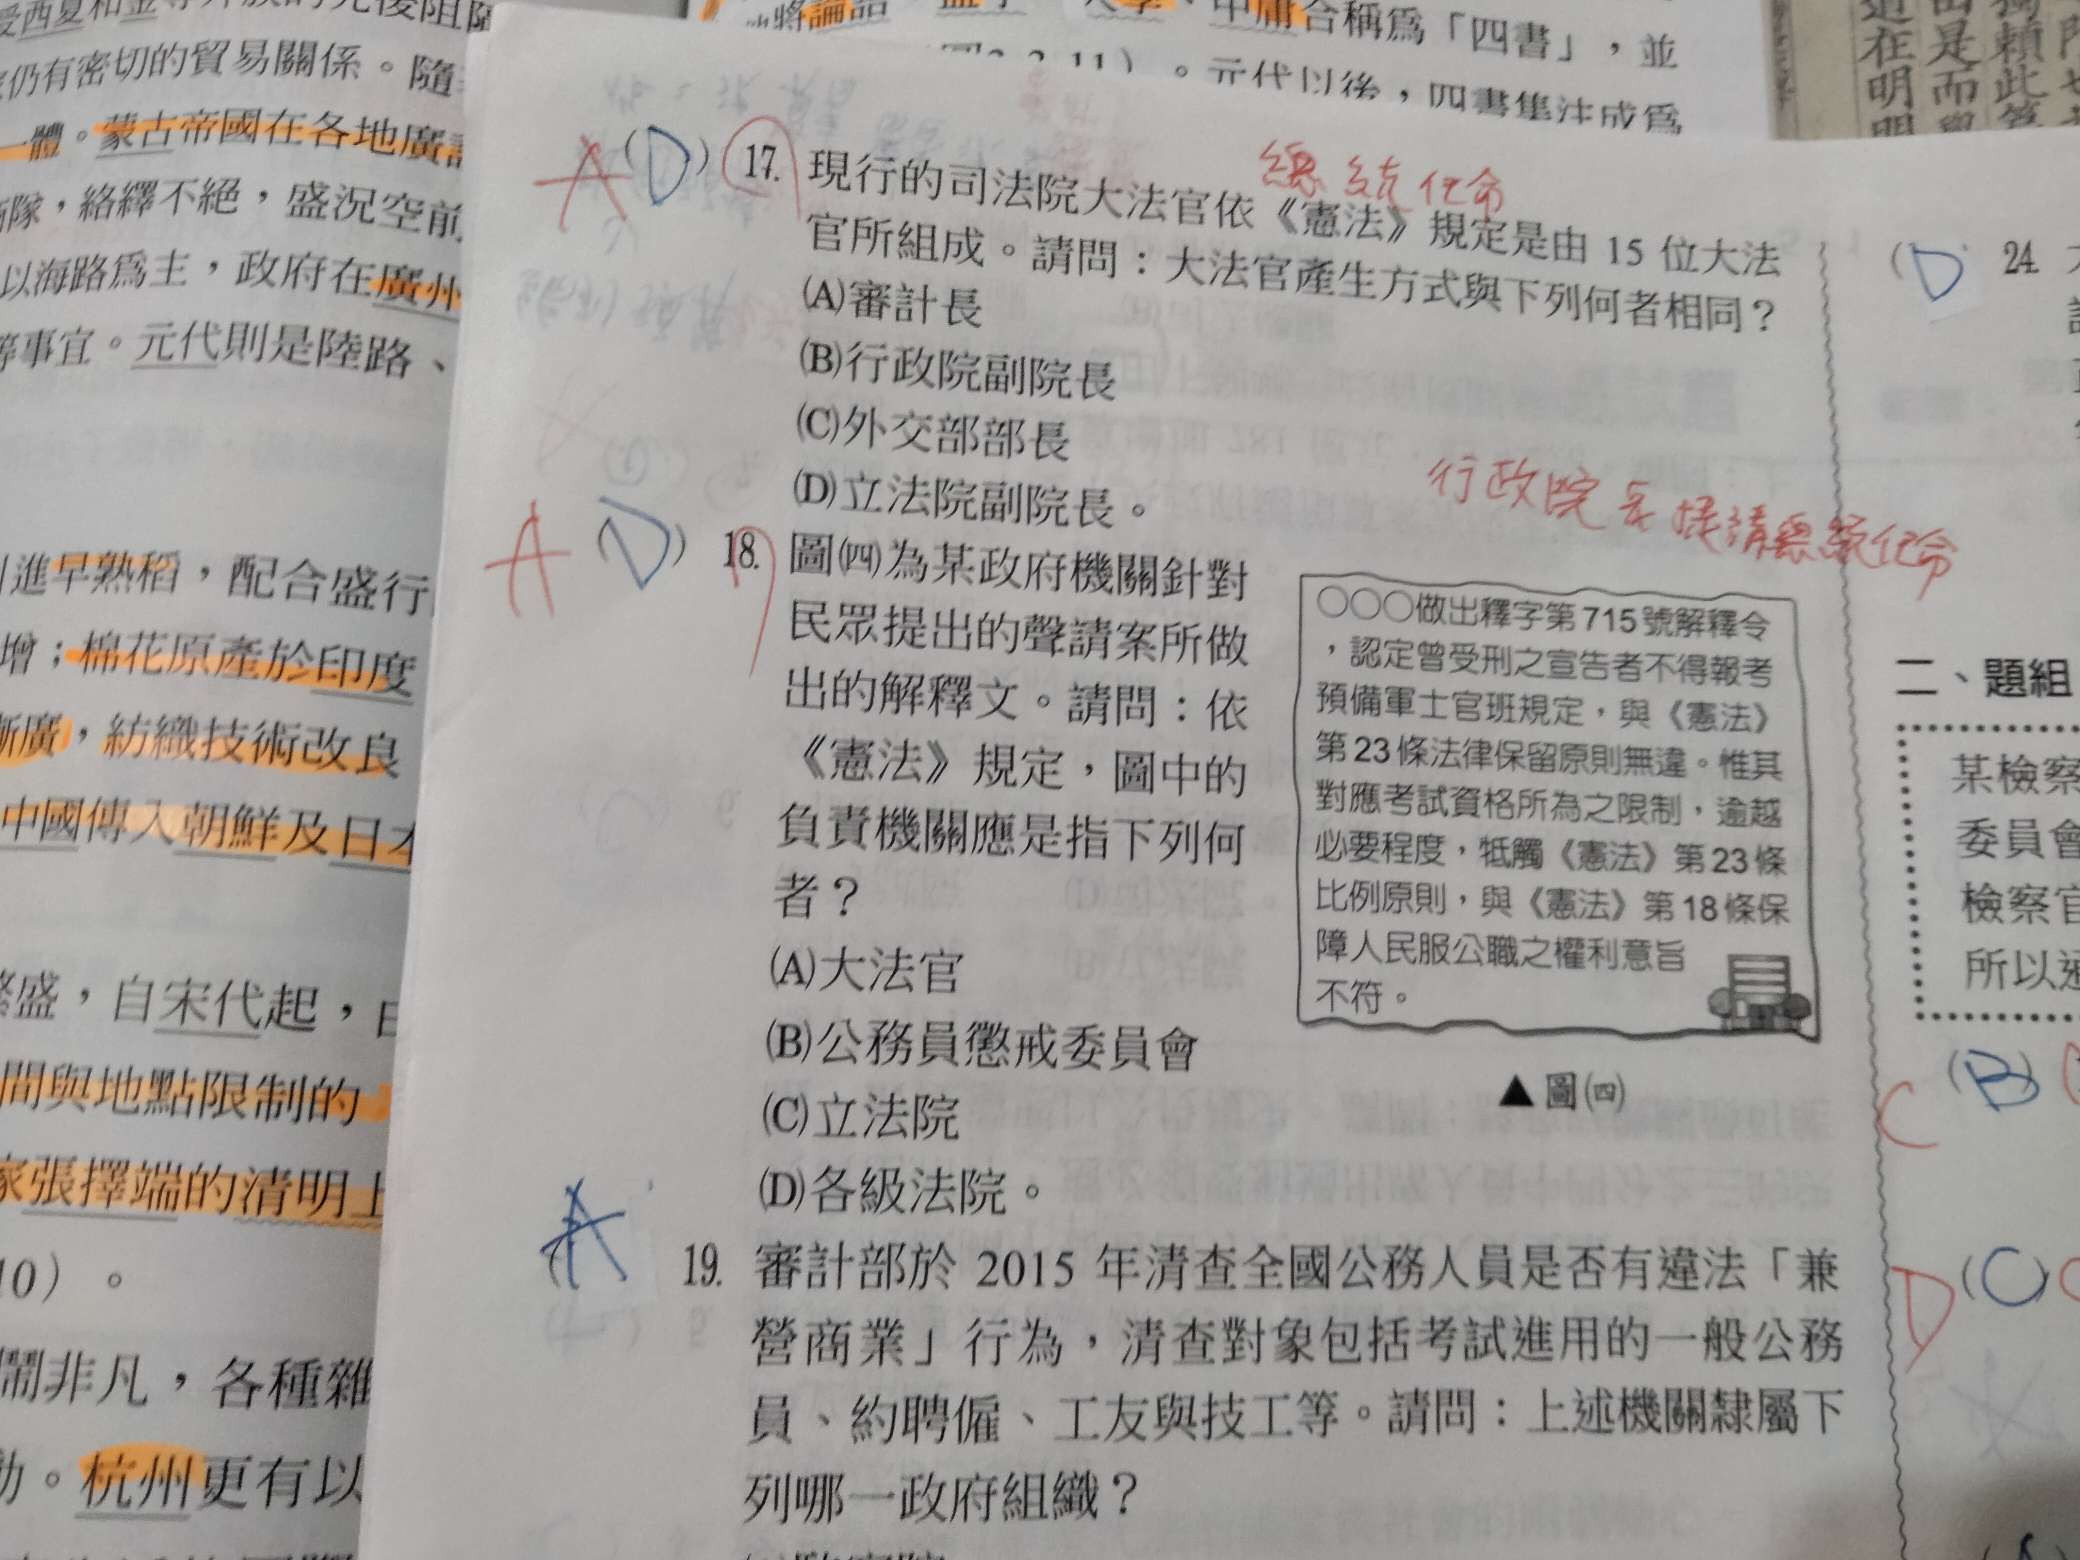 受西夏和金等外族的先後阻
仍有密切的貿易關係。隨
一體。蒙古帝國在各地廣
隊,絡繹不絕,盛況空前
以海路為主,政府在廣州
等事宜。元代則是陸路、
進早熟稻,配合盛行
增;棉花原產於印度
漸廣,紡織技術改良
中國傳入朝鮮及日本
繁盛,自宋代起,
間與地點限制的
家張擇端的清明上
10)。
鬧非凡,各種雜
動。杭州更有以
中庸合稱為「四書」,並
。元代以後,四書集注成為
總統任命
A (D) 17. 現行的司法院大法官依《憲法》規定是由 15 位大法
官所組成。請問:大法官產生方式與下列何者相同?
(A)審計長
(B)行政院副院長
(C)外交部部長
(D)立法院副院長。
行政院長提請總統任命
A (D) 18. 圖㈣為某政府機關針對
民眾提出的聲請案所做
出的解釋文。請問:依
《憲法》規定,圖中的
負責機關應是指下列何
者?
(A)大法官
(B)公務員懲戒委員會
(C)立法院
(D)各級法院。
○○○做出釋字第715號解釋令
,認定曾受刑之宣告者不得報考
預備軍士官班規定,與《憲法》
第23條法律保留原則無違。惟其
對應考試資格所為之限制,逾越
必要程度,牴觸《憲法》第23條
比例原則,與《憲法》第18條保
障人民服公職之權利意旨
不符。
▲圖㈣
(A 19. 審計部於 2015 年清查全國公務人員是否有違法「兼
營商業」行為,清查對象包括考試進用的一般公務
員、約聘僱、工友與技工等。請問:上述機關隸屬下
列哪一政府組織?
(D 24.
二、題組
某檢察
委員會
檢察官
所以
C (B)
D (C)